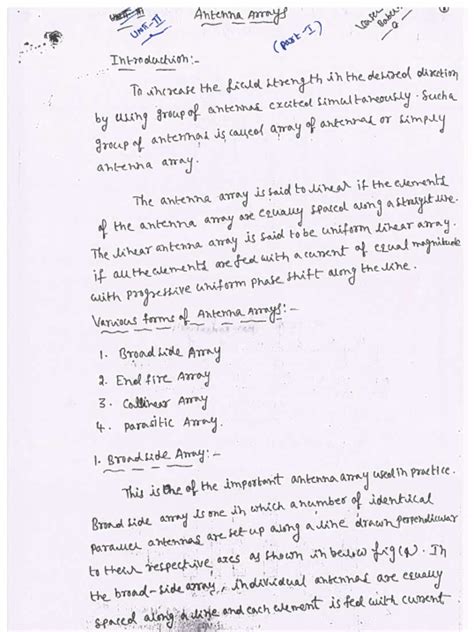 UNIT-II
Antenna Arrays
UNIT-II
(Part-I)
Introduction:-
To increase the field strength in the desired direction
by using group of antennas excited simultaneously. Such a
group of antennas is called array of antennas or simply
antenna array.
The antenna array is said to linear if the elements
of the antenna array are equally spaced along a straight line.
The linear antenna array is said to be uniform linear array.
if all the elements are fed with a current of equal magnitude
with progressive uniform phase shift along the line.
Various forms of Antenna Arrays:-
1. Broad side Array
2. End fire Array
3. Collinear Array
4. Parasitic Array.
1. Broadside Array:-
This is the of the important antenna array used in practice.
Broad side array is one in which a number of identical
parallel antennas are set up along a line drawn perpendicular
to their respective axes as shown in below fig(a). In
the broad-side array, individual antennas are equally
spaced along a line and each element is fed with current